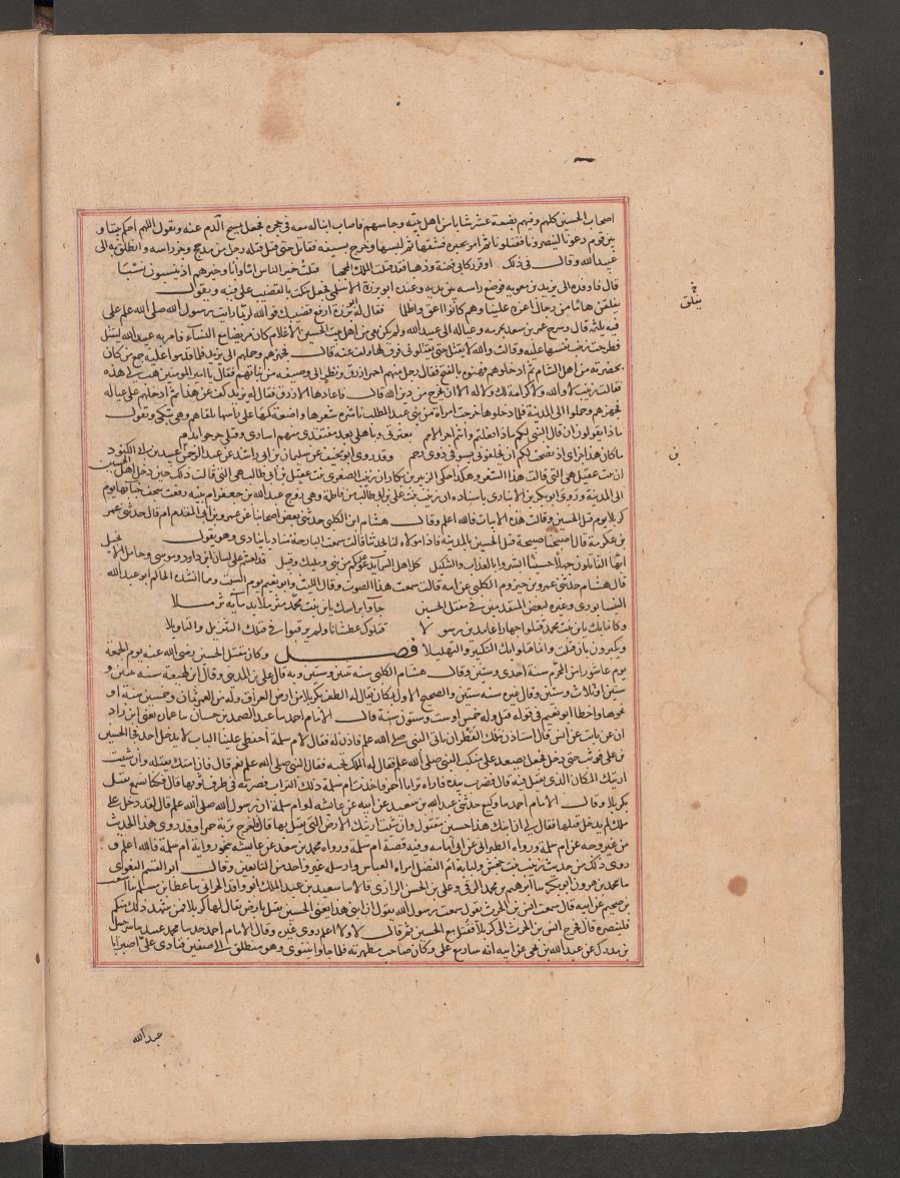 اصحاب الحسين كلهم وفيهم بضعة عشر شابا من اهل بيته وجاسهم فاصاب ابنا له معه في حجره فجعل يمسح الدم عنه ويقول اللهم احكم بيننا و
بين قوم دعونا لينصرونا فقتلونا ثم امر بحبره فشقها ثم لبسها وخرج بسيفه فقاتل حتى قتل قتله رجل من مذحج وحز راسه وانطلق به الى
عبيد الله وقال في ذلك اوقر ركابي فضة وذهبا فقد قتلت الملك المحجبا قتلت خير الناس اما وابا وخيرهم اذ ينسبون نسبا
قال فاوفده الى يزيد بن معوية فوضع راسه بين يديه وعنده ابو برزة الاسلمي فجعل ينكت بالقضيب على فيه ويقول
يفلقن هاما من رجال اعزة علينا وهم كانوا اعق واظلما فقال له ابو برزة ارفع قضيبك فوالله لربما رايت رسول الله صلى الله علم على
فيه يلثمه قال وسرح عمر بن سعد بحرمه وعياله الى عبيد الله ولم يكن بقي من اهل بيت الحسين الا غلام كان مريضا مع النساء فامر به عبيد الله ليقتل
فطرحت زينب نفسها عليه وقالت والله لا يقتل حتى تقتلوني فرق لها وكف عنه قال فجهزهم وحملهم الى يزيد فلما قدموا عليه جمع من كان
بحضرته من اهل الشام ثم ادخلوهم فهنوه بالفتح فقال رجل منهم احمر ازرق ونظر الى وصيفة من بناتهم فقال يا امير المومنين هب لي هذه
فقالت زينب لا والله ولا كرامة لك ولا له الا ان يخرج من دين الله قال فاعادها الازرق فقال له يزيد كف عن هذا ثم ادخلهم على عياله
فجهزهم وحملوا الى المدينة فلما دخلوها خرجت امراة من بني عبد المطلب ناشرة شعرها واضعة كمها على راسها تلقاهم وهي تبكي وتقول
ماذا تقولون ان قال النبي لكم ماذا فعلتم وانتم اخر الامم بعترتي وباهلي بعد مفتقدي منهم اسارى وقتلى ضرجوا بدم
ما كان هذا جزاي اذ نصحت لكم ان تخلفوني بسو في ذوي رحم وقد روى ابو مخنف عن سليمان بن ابي راشد عن عبد الرحمن عبيد بن ابي الكنود
ان بنت عقيل هي التي قالت هذا الشعر وهكذا حكى الزبير بن بكار ان زينب الصغرى بنت عقيل بن ابي طالب هي التي قالت ذلك حين دخل اهل الحسين
الى المدينة وروى ابو بكر بن الانباري باسناده ان زينب بنت علي بن ابي طالب من فاطمة وهي زوج عبد الله بن جعفر ام بنيه رفعت سجف خبائها يوم
كربلا يوم قتل الحسين وقالت هذه الابيات فالله اعلم وقال هشام ابن الكلبي حدثني بعض اصحابنا عن عمرو بن ابي المقدام قال حدثني عمر
بن عكرمة قال اصبحنا صبيحة قتل الحسين بالمدينة فاذا مولاة لنا تحدثنا قالت سمعت البارحة مناديا ينادي وهو يقول
ايها القاتلون جهلا حسينا ابشروا بالعذاب والتنكيل كل اهل السما يدعو عليكم من نبي ومليك وقبيل قد لعنتم على لسان ابن داود وموسى وحامل الانجيل
قال هشام حدثني عمرو بن حيزوم الكلبي عن امه قالت سمعت هذا الصوت وقال الليث وابو نعيم يوم السبت ومما انشده الحاكم ابو عبد الله
النيسابوري وغيره لبعض المتقدمين في مقتل الحسين جاوا براسك يا بن بنت محمد متزملا بدمائه تزميلا
وكانما بك يا بن بنت محمد قتلوا جهارا عامدين رسولا قتلوك عطشانا ولم يرقبوا في قتلك التنزيل والتاويلا
ويكبرون بان قتلت وانما قتلوا بك التكبير والتهليلا فصل وكان مقتل الحسين رضي الله عنه يوم الجمعة
يوم عاشورا من المحرم سنة احدى وستين وقال هشام الكلبي سنة ثنتين وستين وبه قال علي بن المديني وقال ابن لهيعة سنة ثنتين و
ستين او ثلاث وستين وقال غيره سنة ستين والصحيح الاول بمكان يقال له الطف بكربلا من ارض العراق وله من العمر ثمان وخمسين سنة او
نحوها واخطا ابو نعيم في قوله قتل وله خمس او ست وستون سنة قال الامام احمد ما عبد الصمد بن حسان ما عمارة يعني ابن زاذ
ان عن ثابت عن انس قال استاذن ملك القطر ان ياتي النبي صلى الله علم فاذن له فقال لام سلمة احفظي علينا الباب لا يدخل احد فجا الحسين
بن علي فوثب حتى دخل فجعل يصعد على منكب النبي صلى الله علم فقال له الملك اتحبه فقال النبي صلى الله علم نعم قال فان امتك تقتله وان شيت
اريتك المكان الذي يقتل فيه قال فضرب بيده فاراه ترابا احمر فاخذت ام سلمة ذلك التراب فصرته في طرف ثوبها قال فكنا نسمع يقتل
بكربلا وقال الامام احمد ما وكيع حدثني عبد الله بن سعيد عن ابيه عن عايشة او ام سلمة ان رسول الله صلى الله علم قال لقد دخل علي
ملك لم يدخل قبلها فقال لي ان ابنك هذا حسين مقتول وان شيت اريتك الارض التي يقتل بها قال فاخرج تربة حمرا وقد روي هذا الحديث
من غير وجه عن ام سلمة ورواه الطبراني عن ابي امامة وفيه قصة ام سلمة ورواه محمد بن سعد عن عايشة بنحو رواية ام سلمة فالله اعلم و
روي ذلك من حديث زينب بنت جحش ولبابة ام الفضل امراة العباس وارسله غير واحد من التابعين وقال ابو القسم البغوي
ما محمد بن هرون ابو بكر ما ابرهيم بن محمد الرقي وعلي بن الحسن الرازي قالا ما سعيد بن عبد الملك ابو واقد الحراني ما عطا بن مسلم ما اشعث
بن سحيم عن ابيه قال سمعت انس بن الحرث يقول سمعت رسول الله يقول ان ابني هذا يعني الحسين يقتل بارض يقال لها كربلا فمن شهد ذلك منكم
فلينصره قال فخرج انس بن الحرث الى كربلا فقتل مع الحسين ثم قال لا ولا اعلم روى غيره وقال الامام احمد حدثنا محمد بن عبيد ما شرحبيل
بن مدرك عن عبد الله بن نجي عن ابيه انه سار مع علي وكان صاحب مطهرته فلما جاوا نينوى وهو منطلق الى صفين فنادى علي اصبر ابا
يفلق
بن
عبد الله